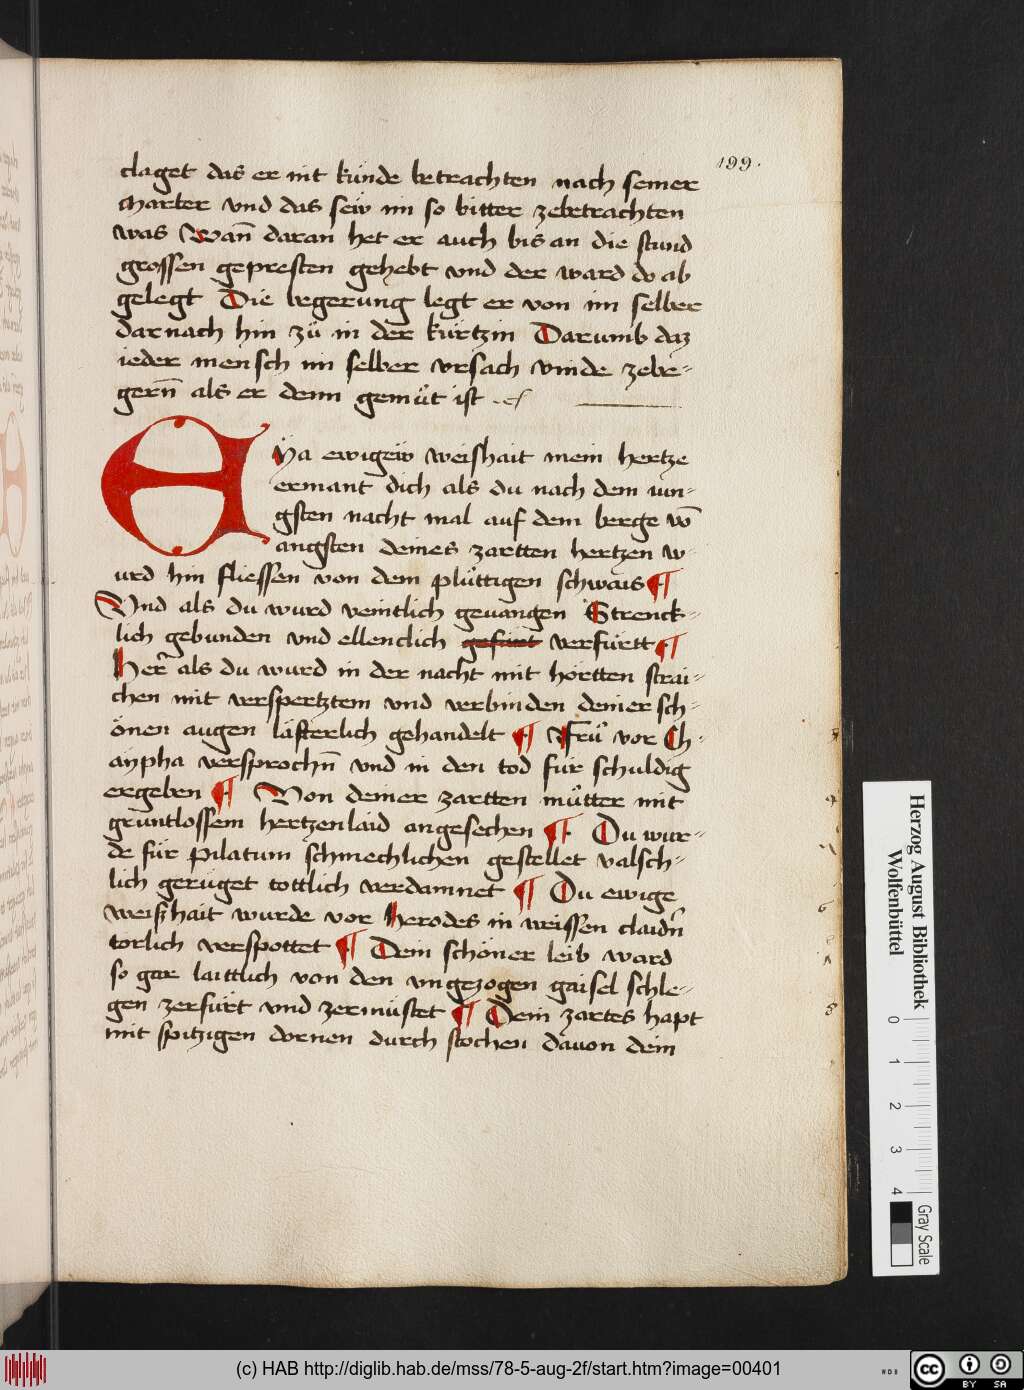 199.
claget das er nit künde betrachten nach seiner
marter vnd das sew im so bitter zebetrachten
was Wan̄ daran het er auch bis an die stund
grossen gepresten gehebt vnd der ward do ab
gelegt Die begerung legt er von im selber
darnach hin zü in der kürtzin Darumb daz
ieder mensch im selber vrsach vinde zebe-
gern̄ als er denn gemüt ist
EYa ewigew weishait mein hertze
ermant dich als du nach dem iun-
gsten nacht mal auf dem berge vō
angsten deines zartten hertzen w-
urd hin fliessen von dem plüttigen schwais ¶
Vnd als du wurd veintlich geuangen Strenck-
lich gebunden vnd ellenclich gefürt verfürtt ¶
Her̄ als du wurd in der nacht mit hörtten strai-
chen mit verspertztem vnd verbinden deiner sch-
önen augen lästerlich gehandelt ¶ Frü vor Ch-
aypha versprochn̄ vnd in den tod für schuldig
ergeben ¶ Von deiner zartten mütter mit
gruntlossem hertzenlaid angesechen ¶ Du wur-
de für Pilatum schmechlichen gestellet valsch-
lich gerüget tottlich verdamnet ¶ Du ewige
weißhait wurde vor Herodes in weissen claidn̄
torlich verspottet ¶ Dein schöner leib ward
so gar laittlich von den vngezogen gaisel schle-
gen zerfürt vnd zermüstet ¶ Dein zartes hapt
mit spitzigen dornen durch stochen dauon dein
Herzog August Bibliothek
Wolfenbüttel
0 1 2 3 4
Gray Scale
(c) HAB http://diglib.hab.de/mss/78-5-aug-2f/start.htm?image=00401
WDB
cc BY SA